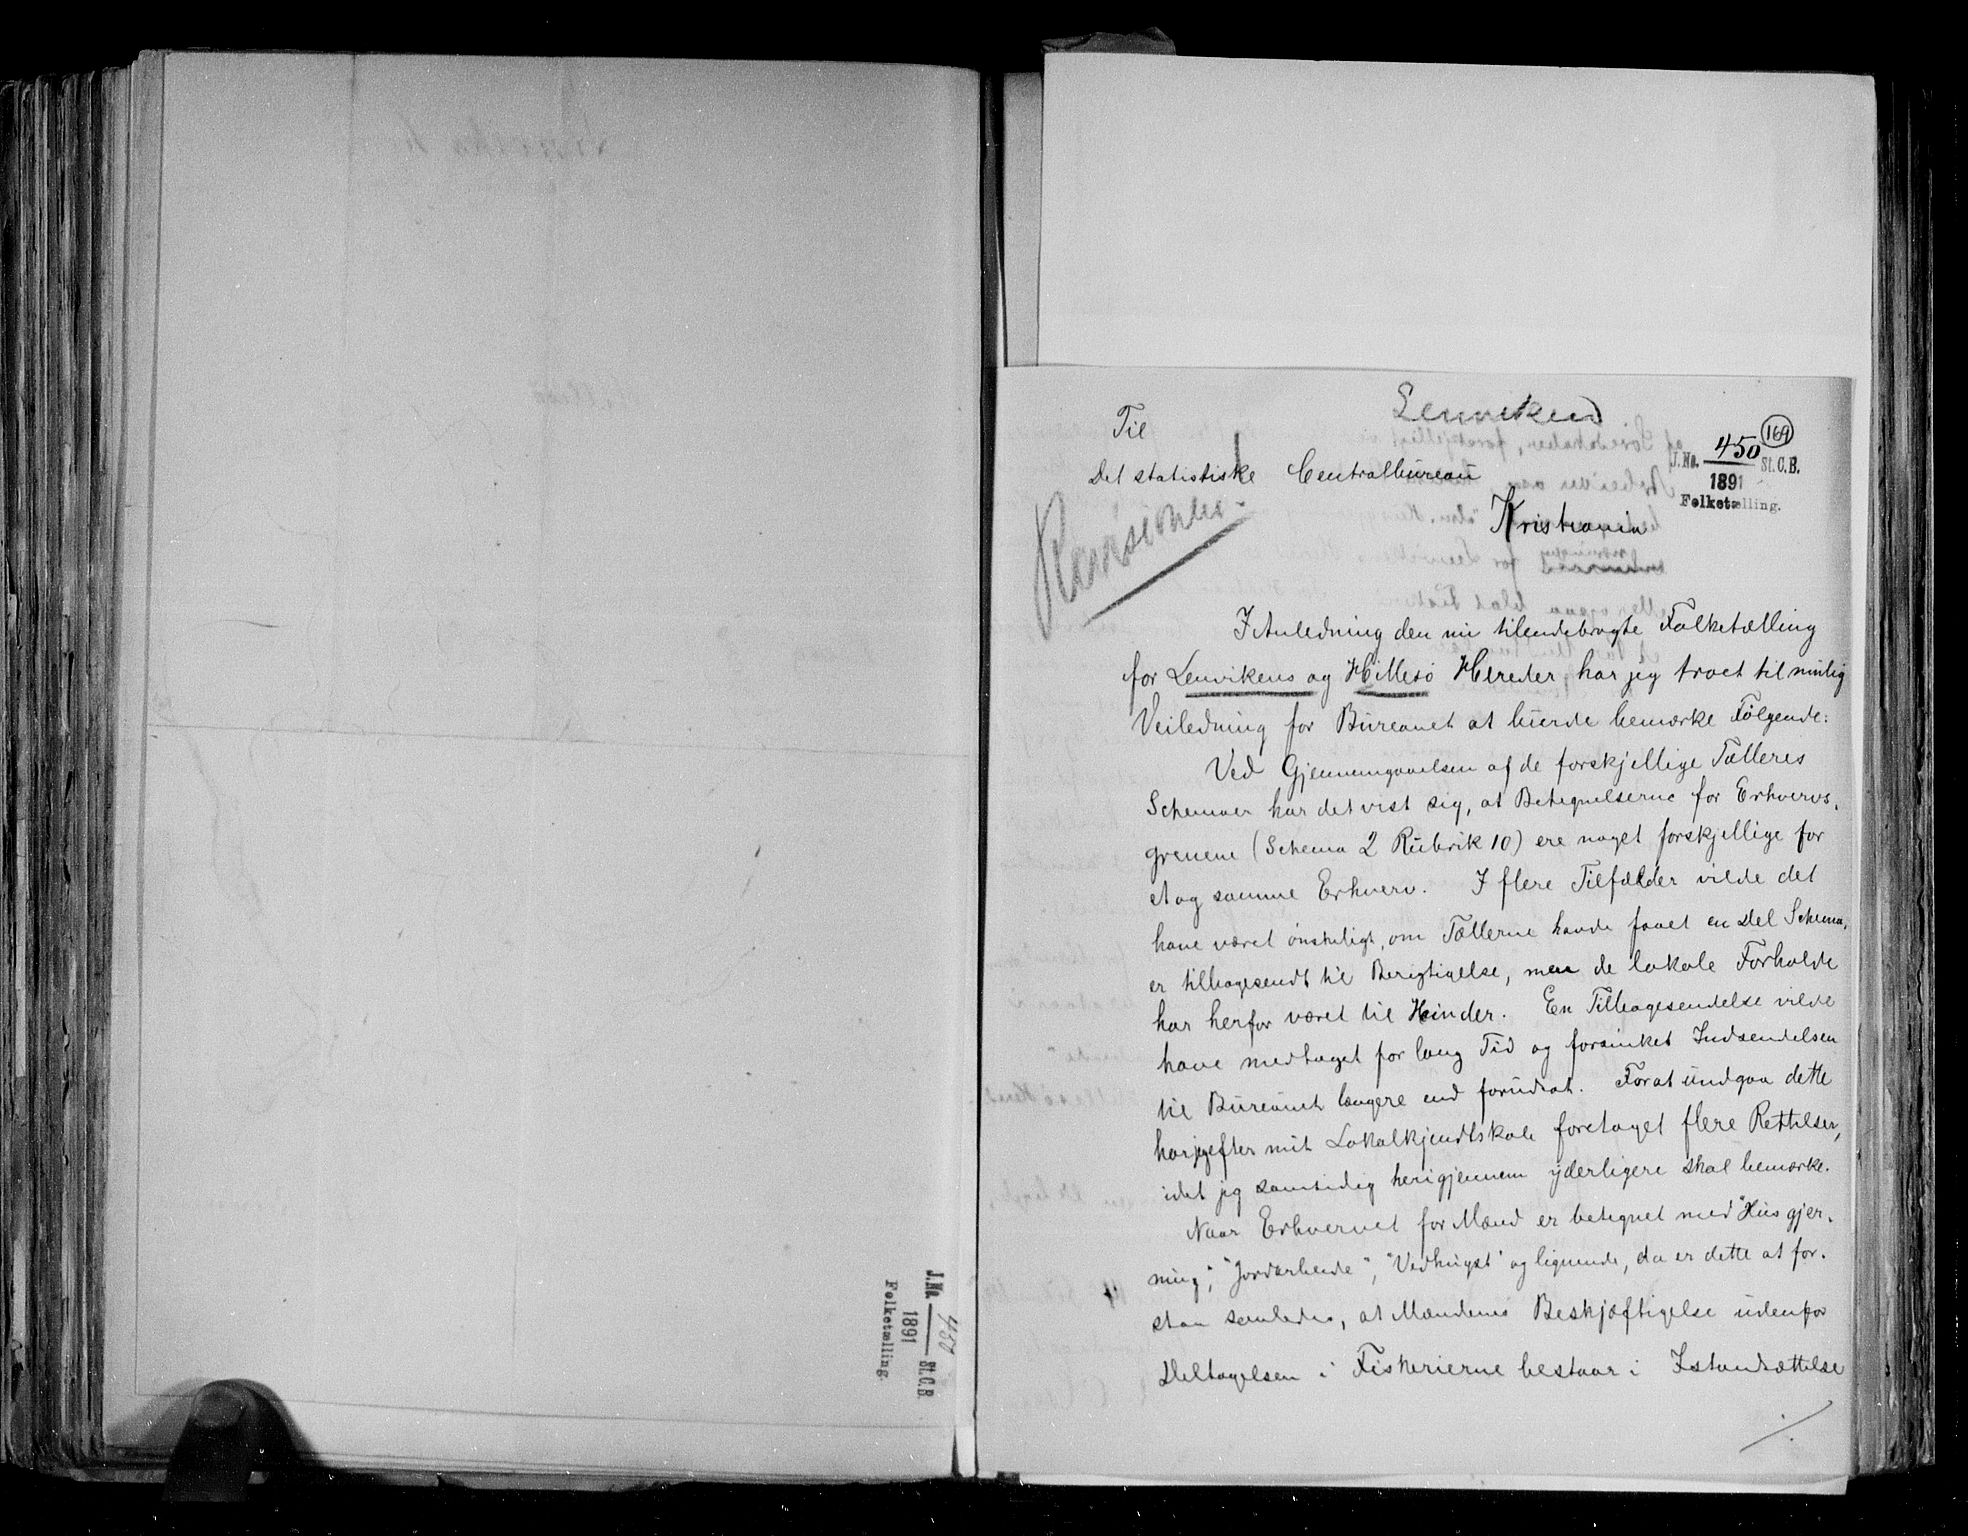 J.No. 450 St.C.B.
1891
Folketælling
Lenviken
169
Til
J.No. 450 St.C.B.
1891
Folketælling.
Det statistiske Centralbureau
Kristiania
I Anledning den nu tilendebragte Folketælling
for Lenvikens og Hillesö Hereder har jeg troet til mulig
Veiledning for Bureauet at burde bemærke Følgende:
Ved Gjennemgaaelsen af de forskjellige Tælleres
Schemaer har det vist sig, at Betegnelserne for Erhvervs-
grenene (Schema 2 Rubrik 10) ere noget forskjellige for
et og samme Erhverv. I flere Tilfælder vilde det
have været ønskeligt, om Tællerne havde faaet en Del Schema-
er tilbagesendt til Berigtigelse, men de lokale Forholde
har herfor været til Hinder. En Tilbagesendelse vilde
have medtaget for lang Tid og forsinket Indsendelsen
til Bureauet længere end forudsat. Forat undgaa dette
har jeg efter mit Lokalkjendtskab foretaget flere Rettelser,
idet jeg samtidig herigjennem yderligere skal bemærke.
Naar Erhvervet for Mænd er betegnet med "Husgjer-
ning", "Jordarbeide", "Vedhugst" og lignende, da er dette at for-
staa saaledes, at Mændenes Beskjæftigelse udenfor
Deltagelsen i Fiskerierne bestaar i Istandsættelse
./.